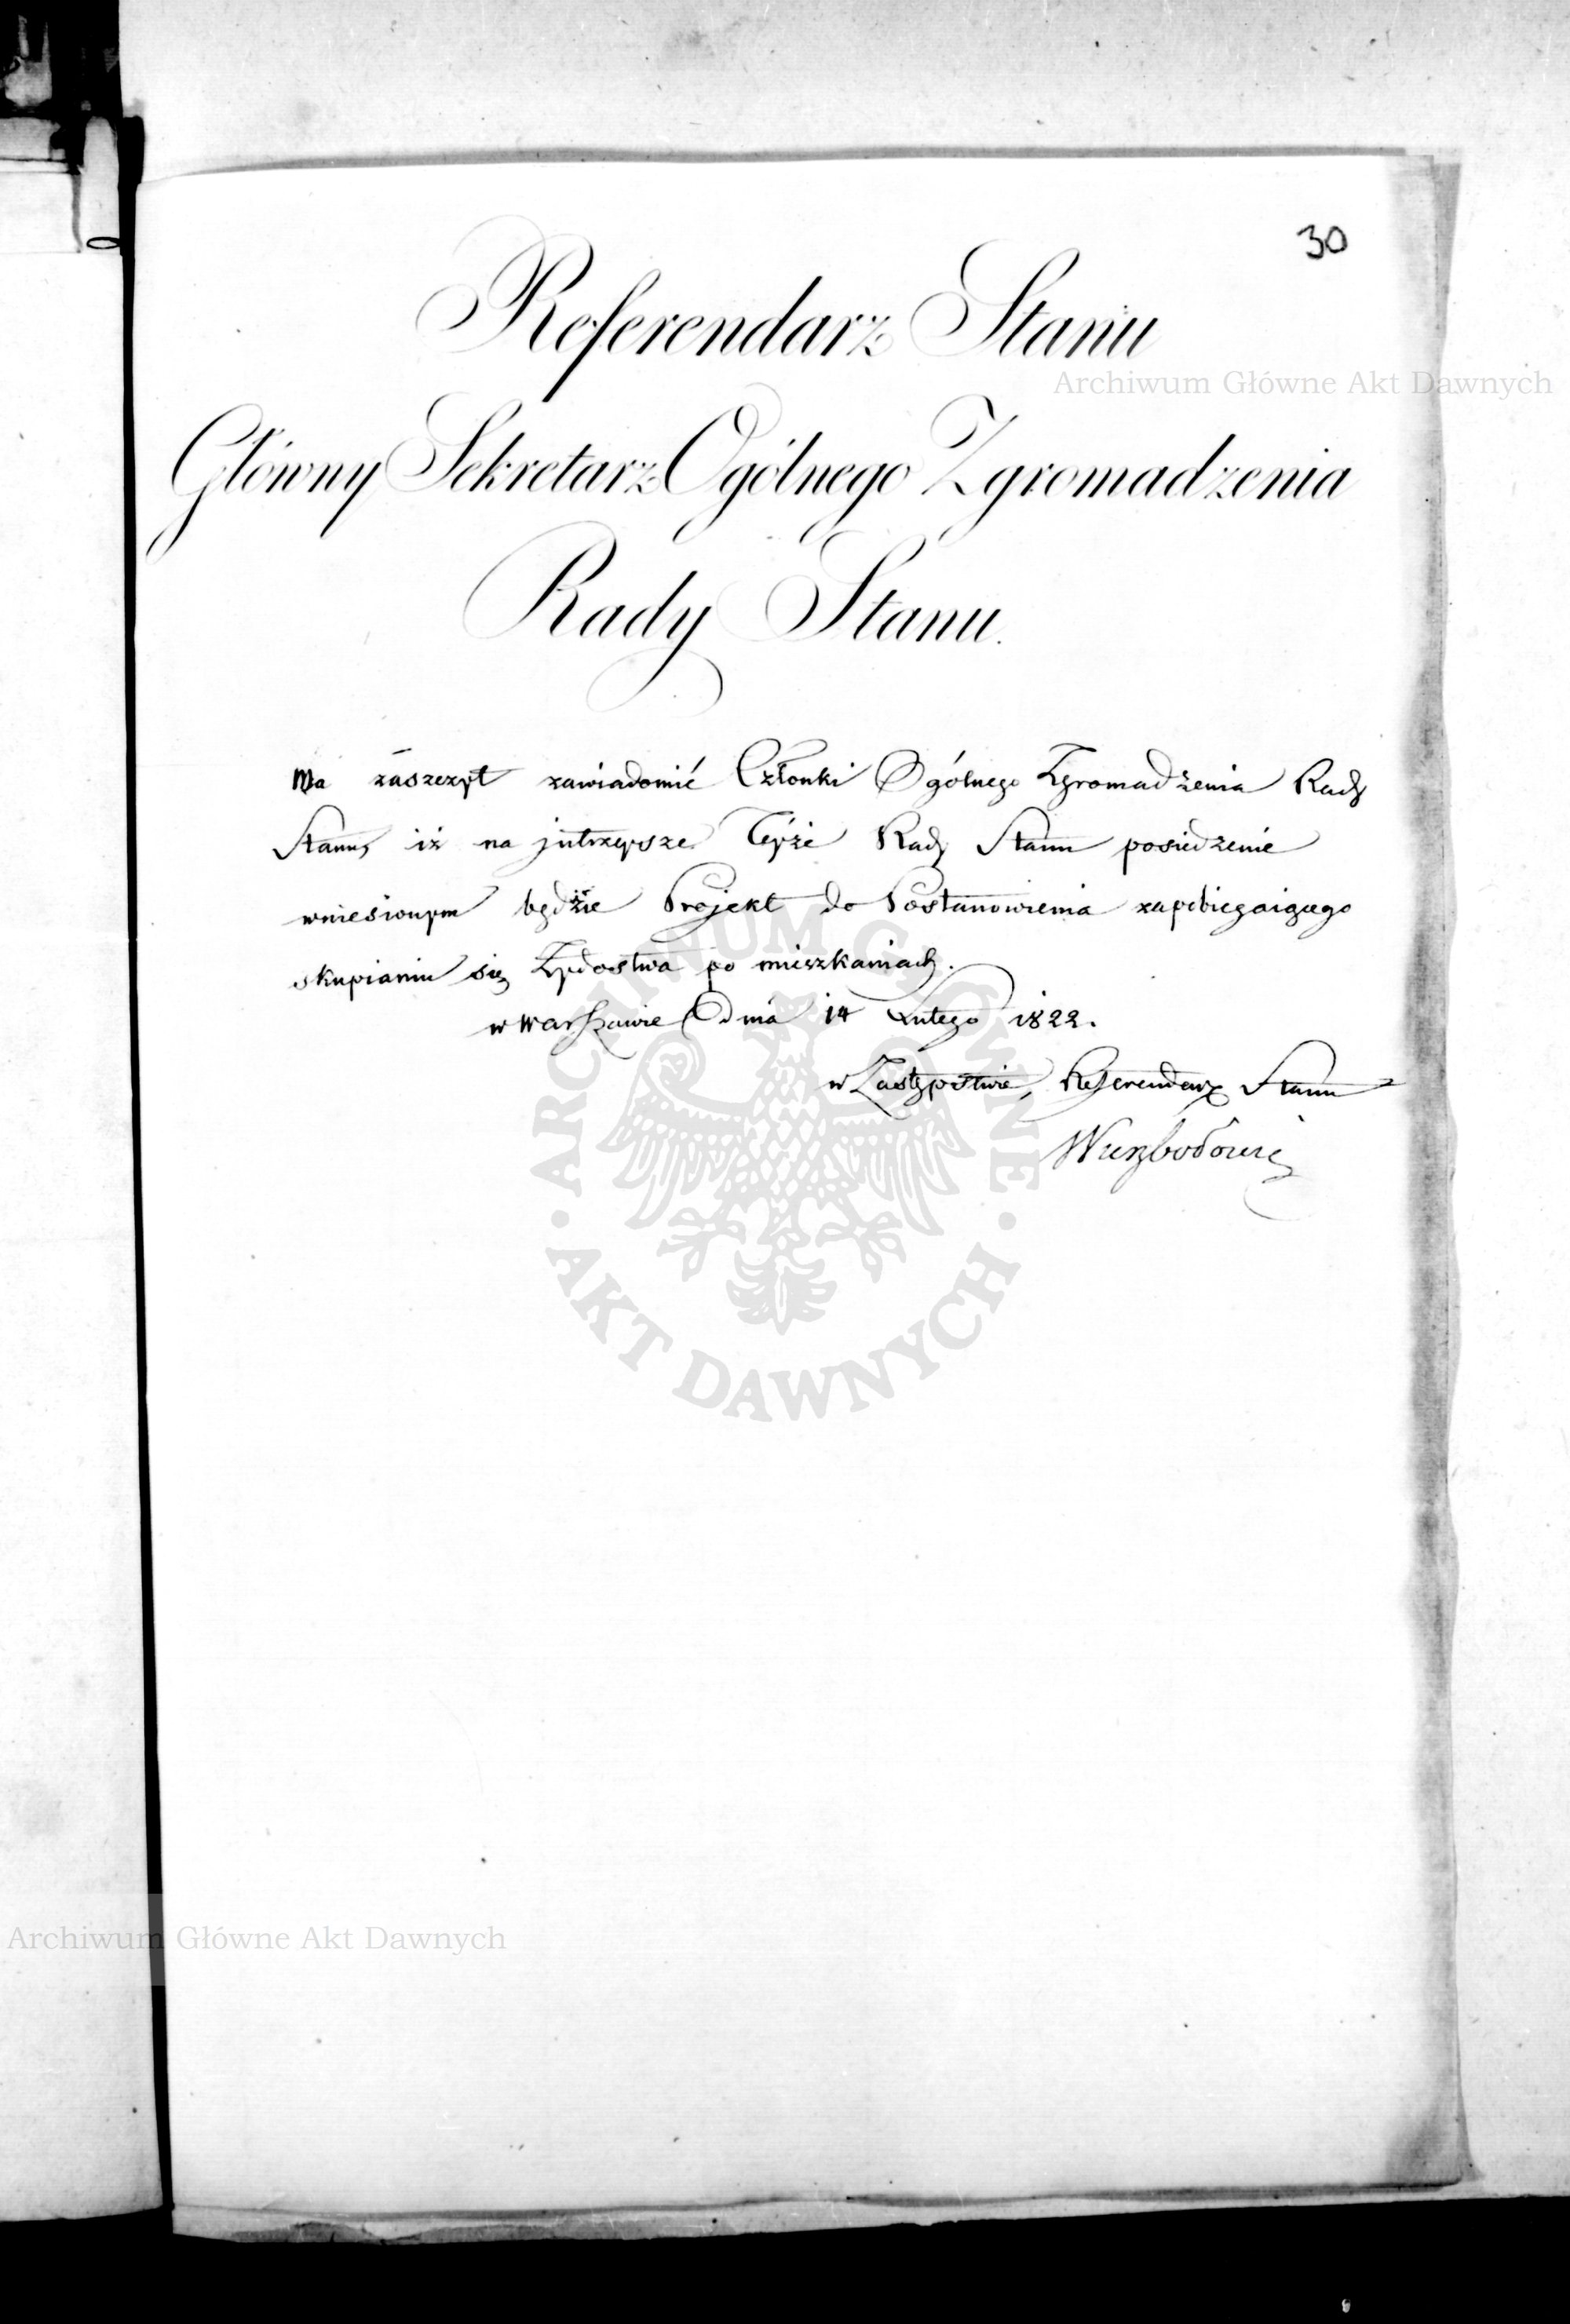 30
Referendarz Stanu
Główny Sekretarz Ogólnego Zgromadzenia
Rady Stanu.
Ma zaszczyt zawiadomić Członki Ogólnego Zgromadzenia Rady
Stanu, iż na jutrzeysze Teyże Rady Stanu posiedzenie
wniesionym będzie Projekt do Postanowienia zapobiegaiącego
skupianiu się Żydostwa po mieszkaniach.
w Warszawie Dnia 14 Lutego 1822.
w Zastępstwie, Referendarz Stanu
Archiwum Główne Akt Dawnych
ARCHIWUM GŁÓWNE · AKT DAWNYCH ·
Archiwum Główne Akt Dawnych